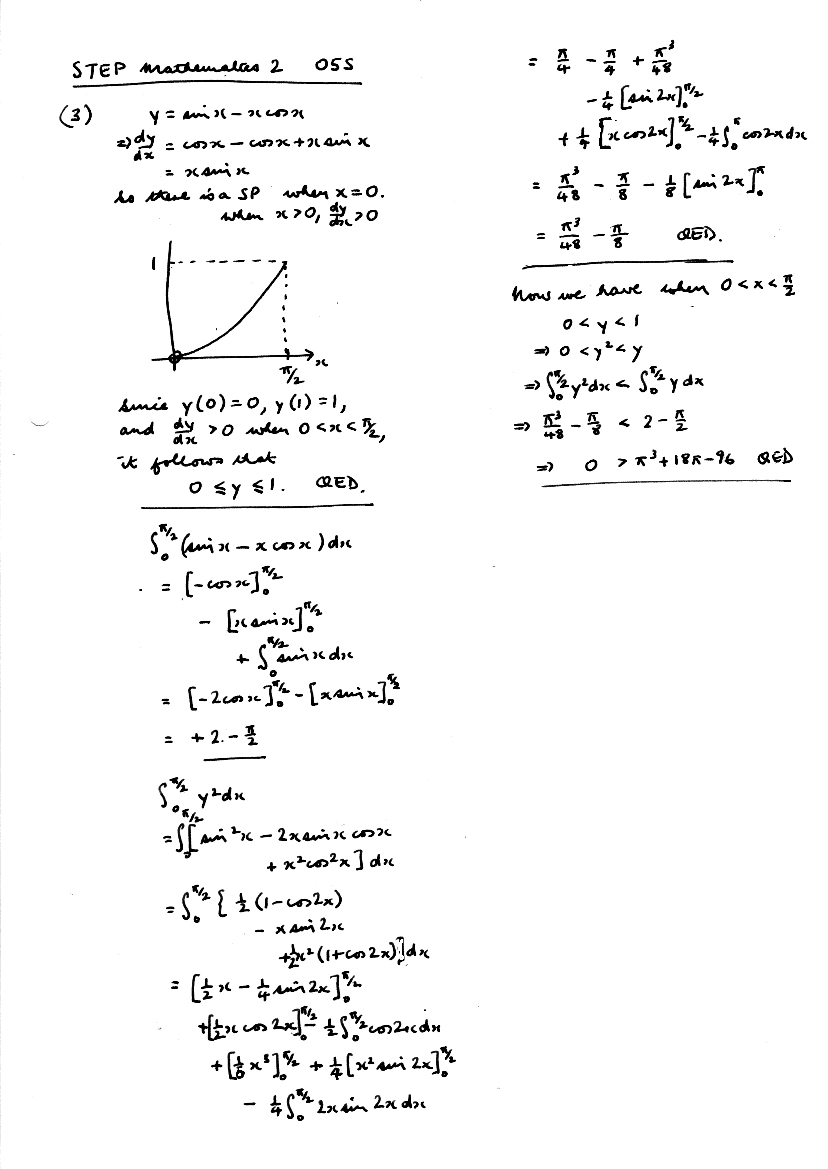 STEP Mathematics 2 05S
(3) y = sin x - x cos x
=> dy/dx = cos x - cos x + x sin x
= x sin x
So there is a SP when x = 0.
when x > 0, dy/dx > 0
1
x
π/2
Since y(0) = 0, y(1) = 1,
and dy/dx > 0 when 0 < x < π/2,
it follows that
0 ≤ y ≤ 1. QED.
∫₀^{π/2} (sin x - x cos x) dx
= [-cos x]₀^{π/2}
- [x sin x]₀^{π/2}
+ ∫₀^{π/2} sin x dx
= [-2cos x]₀^{π/2} - [x sin x]₀^{π/2}
= + 2 - π/2
∫₀^{π/2} y² dx
= ∫₀^{π/2} [sin²x - 2x sin x cos x
+ x² cos²x] dx
= ∫₀^{π/2} { ½(1 - cos 2x)
- x sin 2x
+ ½x²(1 + cos 2x)} dx
= [½x - ¼ sin 2x]₀^{π/2}
+ [½x cos 2x]₀^{π/2} - ½∫₀^{π/2} cos 2x dx
+ [⅙x³]₀^{π/2} + ¼[x² sin 2x]₀^{π/2}
- ¼∫₀^{π/2} 2x sin 2x dx
= π/4 - π/4 + π³/48
- ¼[sin 2x]₀^{π/2}
+ ¼[x cos 2x]₀^{π/2} - ¼∫₀^{π} cos 2x dx
= π³/48 - π/8 - ⅛[sin 2x]₀^{π}
= π³/48 - π/8 QED.
Now we have when 0 < x < π/2
0 < y < 1
=> 0 < y² < y
=> ∫₀^{π/2} y² dx < ∫₀^{π/2} y dx
=> π³/48 - π/8 < 2 - π/2
=> 0 > π³ + 18π - 96 QED